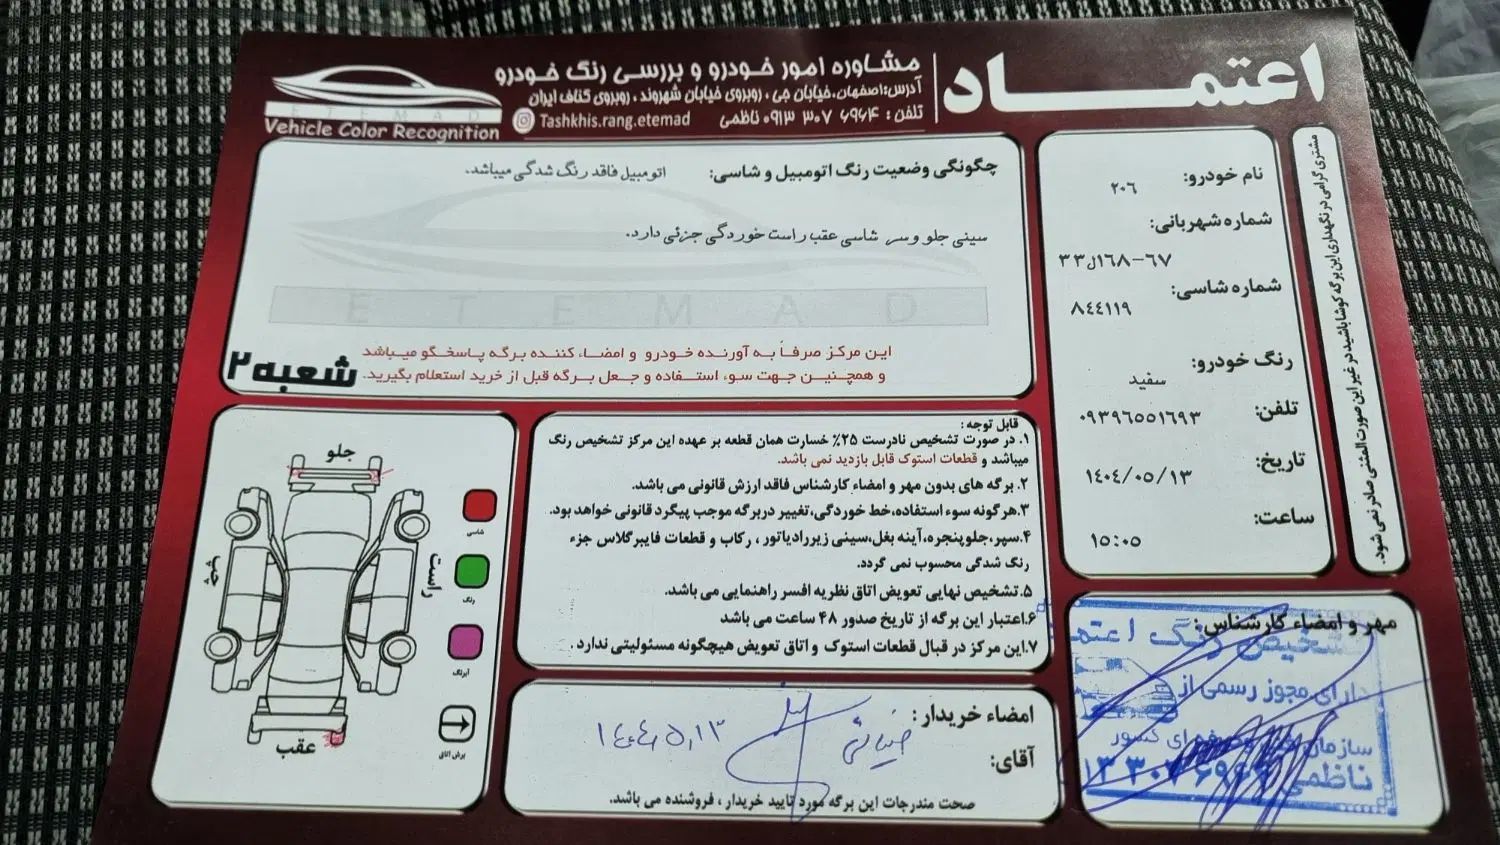 اعتماد
مشاوره امور خودرو و بررسی رنگ خودرو
آدرس:اصفهان،خیابان جی، روبروی خیابان شهروند، روبروی کناف ایران
تلفن: ۰۹۱۳ ۳۰۷ ۶۹۶۴ ناظمی
Tashkhis.rang.etemad
ETEMAD
Vehicle Color Recognition
مشتری گرامی در نگهداری این برگه کوشا باشید، در غیر این صورت المثنی صادر نمی شود.
نام خودرو:
۲۰۶
شماره شهربانی:
۳۳ل۱۶۸-۶۷
شماره شاسی:
۸۴۴۱۱۹
رنگ خودرو:
سفید
تلفن:
۰۹۳۹۶۵۵۱۶۹۳
تاریخ:
۱۴۰۴/۰۵/۱۳
ساعت:
۱۵:۰۵
چگونگی وضعیت رنگ اتومبیل و شاسی: اتومبیل فاقد رنگ شدگی میباشد.
سینی جلو و سر شاسی عقب راست خوردگی جزئی دارد.
ETEMAD
این مرکز صرفاً به آورنده خودرو و امضاء کننده برگه پاسخگو میباشد
و همچنین جهت سوء استفاده و جعل برگه قبل از خرید استعلام بگیرید.
شعبه ۲
قابل توجه:
۱. در صورت تشخیص نادرست ۲۵% خسارت همان قطعه بر عهده این مرکز تشخیص رنگ
میباشد و قطعات استوک قابل بازدید نمی باشد.
۲. برگه های بدون مهر و امضاء کارشناس فاقد ارزش قانونی می باشد.
۳.هرگونه سوء استفاده،خط خوردگی،تغییر دربرگه موجب پیگرد قانونی خواهد بود.
۴.سپر،جلوپنجره،آینه بغل،سینی زیررادیاتور، رکاب و قطعات فایبرگلاس جزء
رنگ شدگی محسوب نمی گردد.
۵.تشخیص نهایی تعویض اتاق نظریه افسر راهنمایی می باشد.
۶.اعتبار این برگه از تاریخ صدور ۴۸ ساعت می باشد
۷.این مرکز در قبال قطعات استوک و اتاق تعویض هیچگونه مسئولیتی ندارد.
جلو
راست
چپ
عقب
شاسی
رنگ
آبرنگ
برش اتاق
امضاء خریدار:
۱۴۰۴,۵,۱۳
آقای:
صحت مندرجات این برگه مورد تایید خریدار، فروشنده می باشد.
مهر و امضاء کارشناس:
تشخیص رنگ اعتماد
دارای مجوز رسمی از
سازمان فنی و حرفه ای کشور
ناظمی